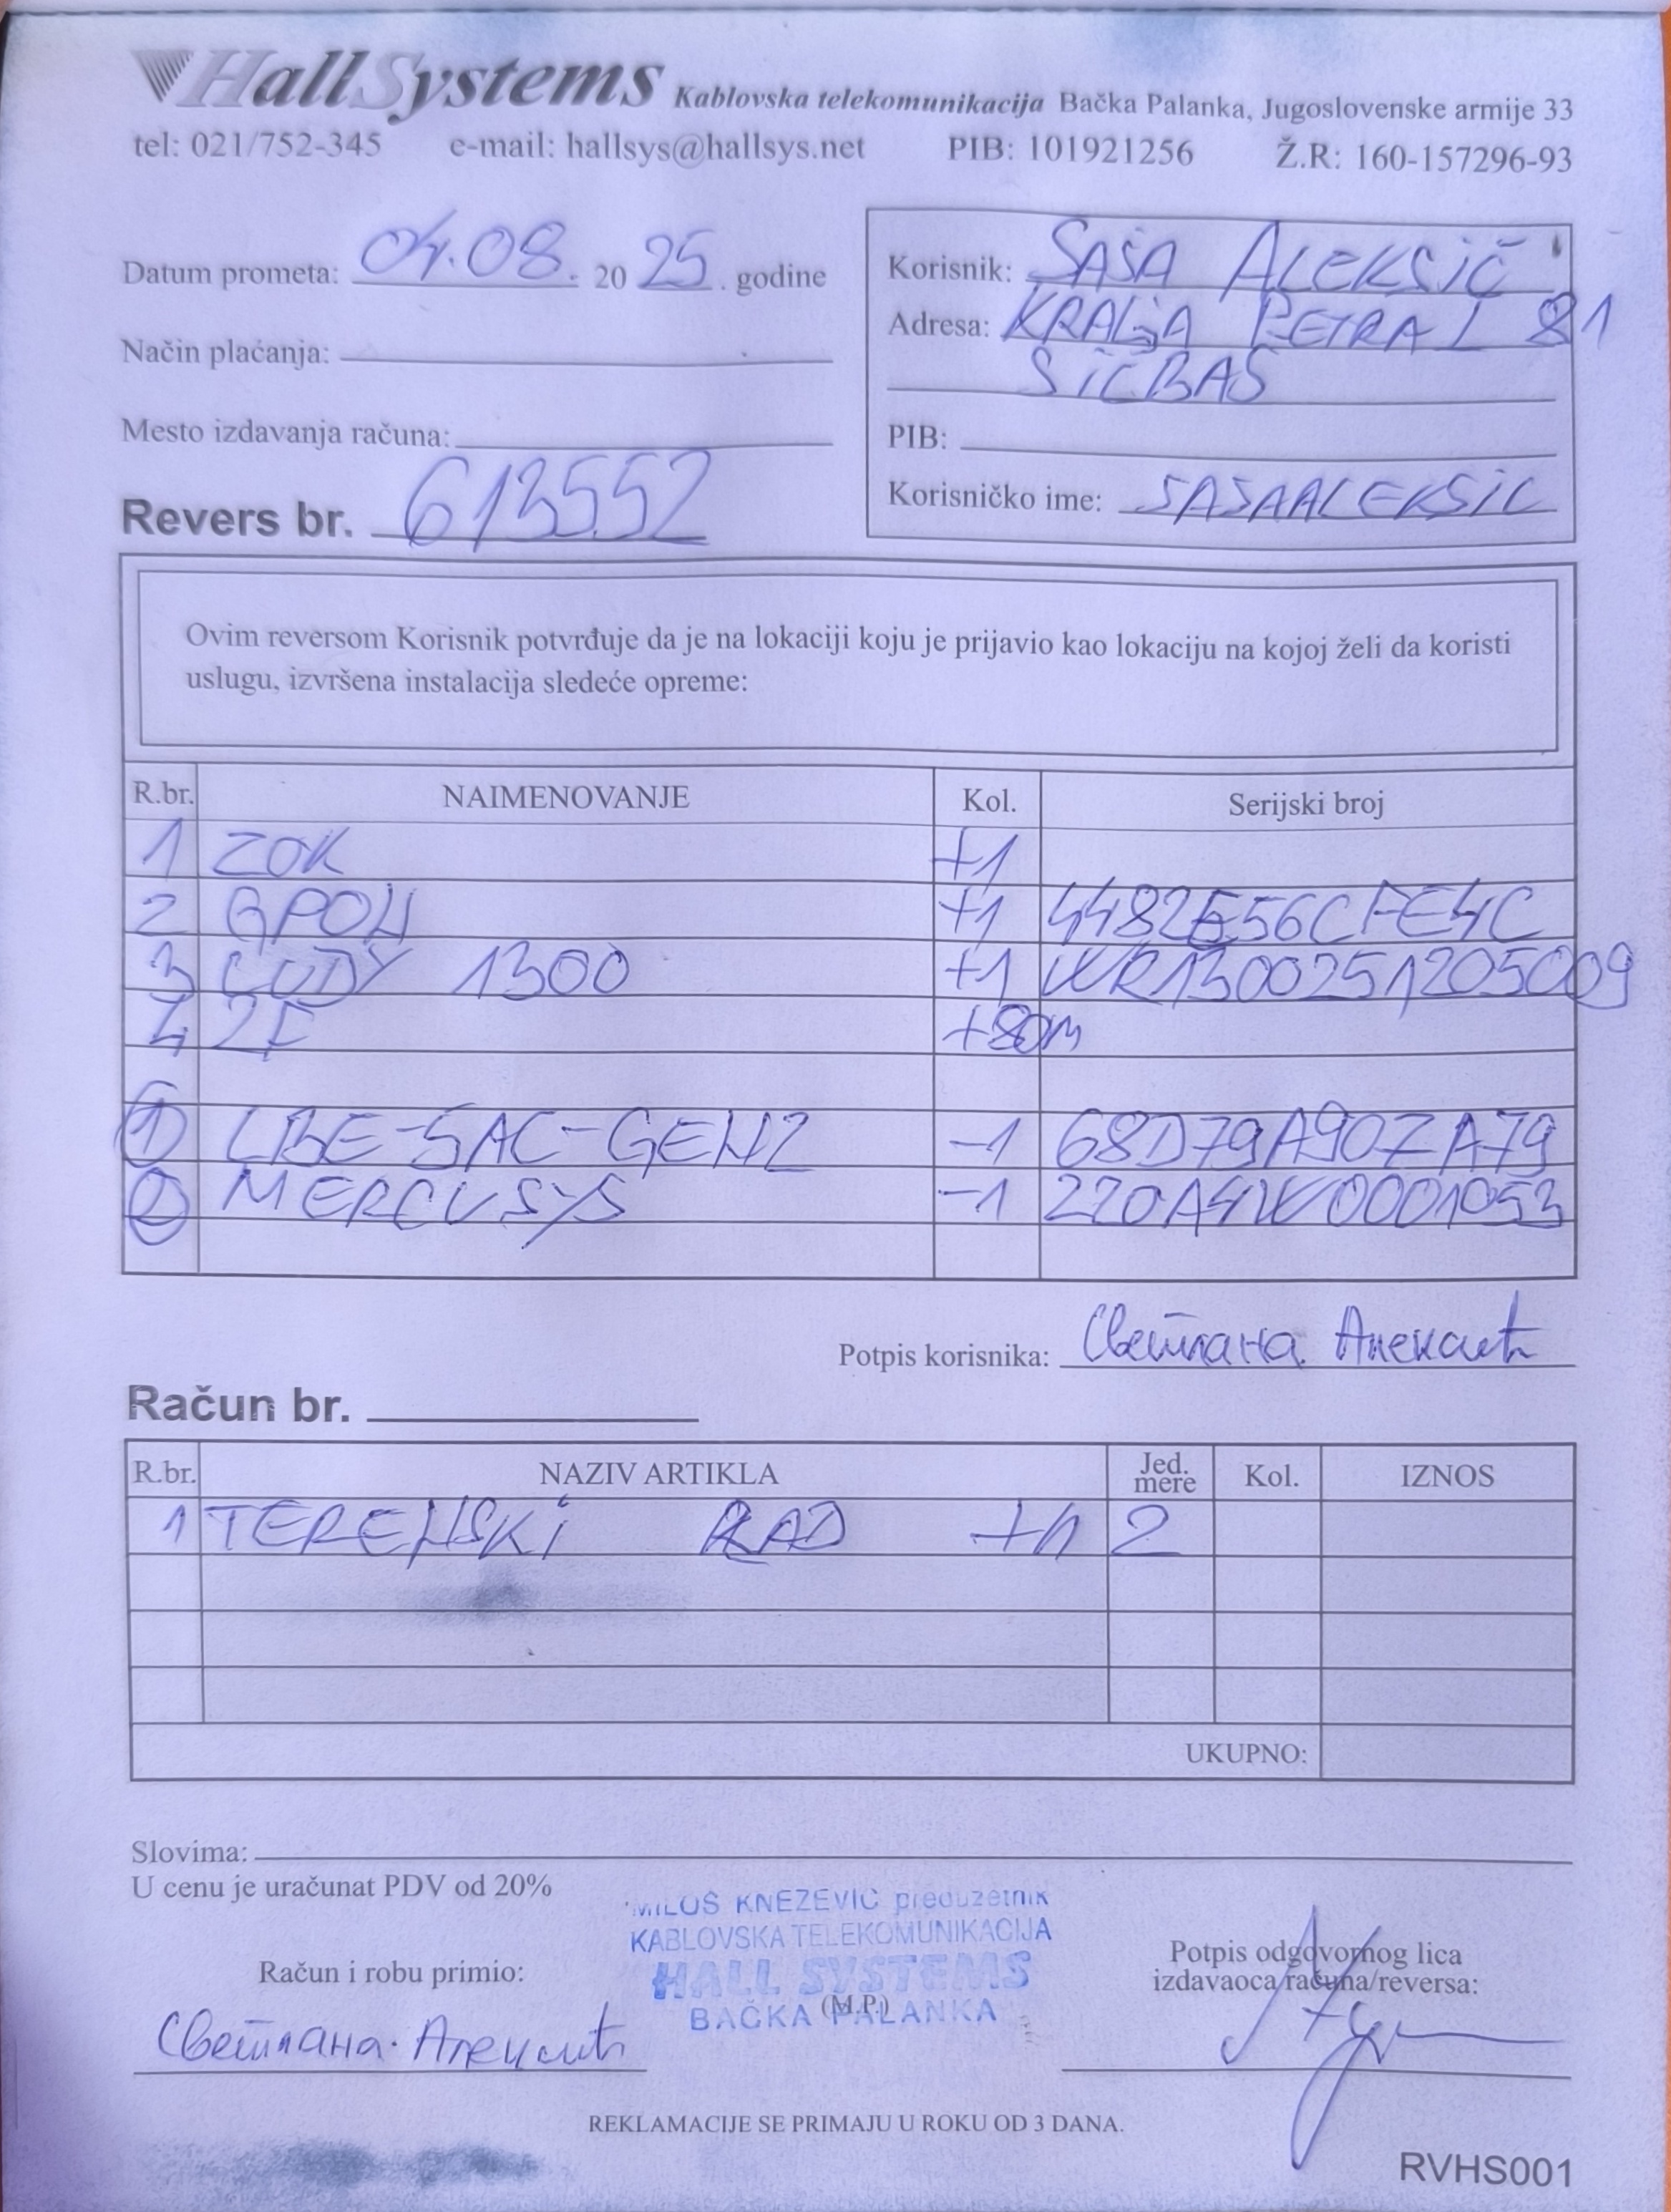 Hall Systems Kablovska telekomunikacija Bačka Palanka, Jugoslovenske armije 33
tel: 021/752-345 e-mail: hallsys@hallsys.net PIB: 101921256 Ž.R: 160-157296-93
Datum prometa: 04.08. 20 25 . godine
Korisnik: SAŠA ALEKSIĆ
Adresa: KRALJA PETRA I 81
Način plaćanja:
SILBAŠ
Mesto izdavanja računa:
PIB:
Revers br. 613552
Korisničko ime: SASAALEKSIC
Ovim reversom Korisnik potvrđuje da je na lokaciji koju je prijavio kao lokaciju na kojoj želi da koristi
uslugu, izvršena instalacija sledeće opreme:
R.br. NAIMENOVANJE Kol. Serijski broj
1 ZOK +1
2 GPON +1 4482E56CFE4C
3 CUDY 1300 +1 WR1300251205009
4 2F +80m
1 LBE-5AC-GEN2 -1 68D79A90ZA79
2 MERCUSYS -1 220A4W0001053
Potpis korisnika: Светлана Алексић
Račun br.
R.br. NAZIV ARTIKLA Jed. mere Kol. IZNOS
1 TERENSKI RAD +1 2
UKUPNO:
Slovima:
U cenu je uračunat PDV od 20%
MILOŠ KNEŽEVIĆ preduzetnik
KABLOVSKA TELEKOMUNIKACIJA
HALL SYSTEMS
BAČKA PALANKA
(M.P.)
Račun i robu primio:
Светлана Алексић
Potpis odgovornog lica
izdavaoca računa/reversa:
REKLAMACIJE SE PRIMAJU U ROKU OD 3 DANA.
RVHS001